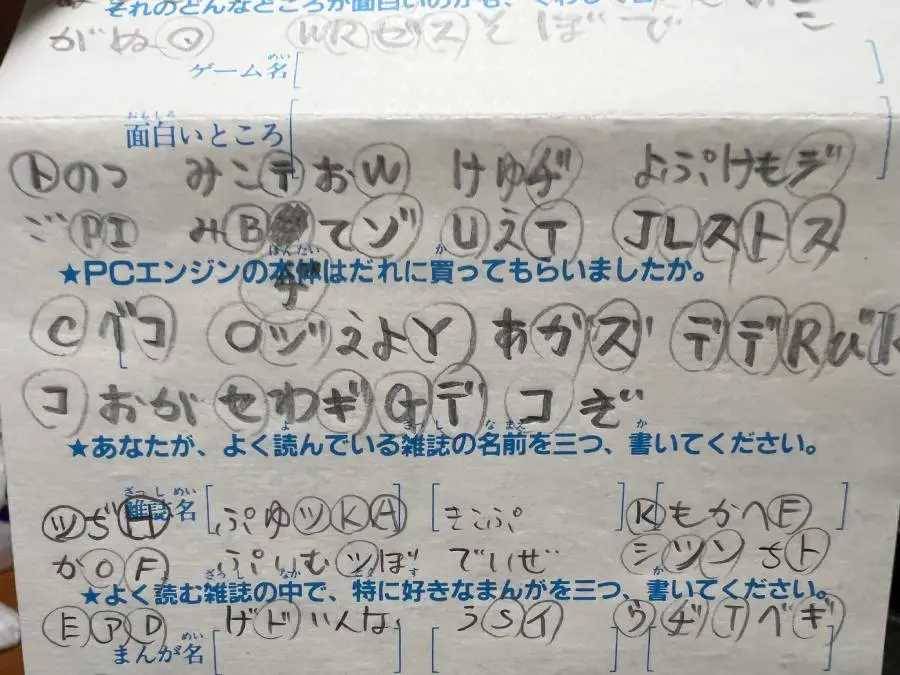 それのどんなところが面白いのかも、くわし
がぬ WRゼスそ ぼで
ゲーム名
面白いところ
トのつ みこテおW けゆヂ よぷけもデ
ご PI みB てゾ UえT JLストス
★PCエンジンの本体はだれに買ってもらいましたか。
Cベコ OヅえよY あガズ デデRび
コおがセわギGデ コぎ
★あなたが、よく読んでいる雑誌の名前を三つ、書いてください。
雑誌名
ツぢ ぷゆツKA きこぷ KもかへE
かOF ぷいむツぼ でいぜ シツンちト
★よく読む雑誌の中で、特に好きなまんがを三つ、書いてください。
EアD げドいんな うSイ ウヂTベギ
まんが名